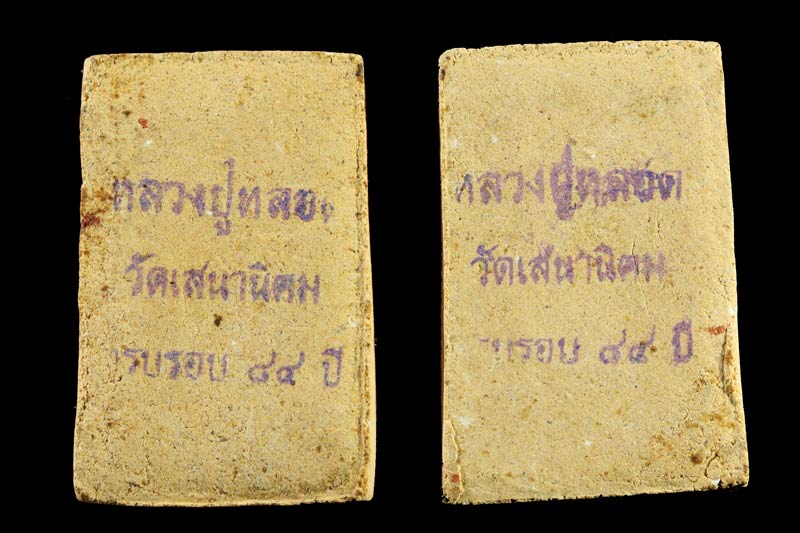 หลวงปู่หลอด
วัดเสนานิคม
ครบรอบ ๘๔ ปี
หลวงปู่หลอด
วัดเสนานิคม
รบรอบ ๘๔ ปี